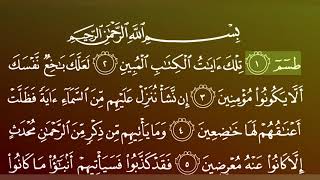 بِسْمِ اللَّهِ الرَّحْمَٰنِ الرَّحِيمِ
طسٓمٓ ١ تِلْكَ ءَايَٰتُ الْكِتَٰبِ الْمُبِينِ ٢ لَعَلَّكَ بَٰخِعٌ نَّفْسَكَ
أَلَّا يَكُونُوا مُؤْمِنِينَ ٣ إِن نَّشَأْ نُنَزِّلْ عَلَيْهِم مِّنَ السَّمَاءِ ءَايَةً فَظَلَّتْ
أَعْنَٰقُهُمْ لَهَا خَٰضِعِينَ ٤ وَمَا يَأْتِيهِم مِّن ذِكْرٍ مِّنَ الرَّحْمَٰنِ مُحْدَثٍ
إِلَّا كَانُوا عَنْهُ مُعْرِضِينَ ٥ فَقَدْ كَذَّبُوا فَسَيَأْتِيهِمْ أَنۢبَٰٓؤُا مَا كَانُوا